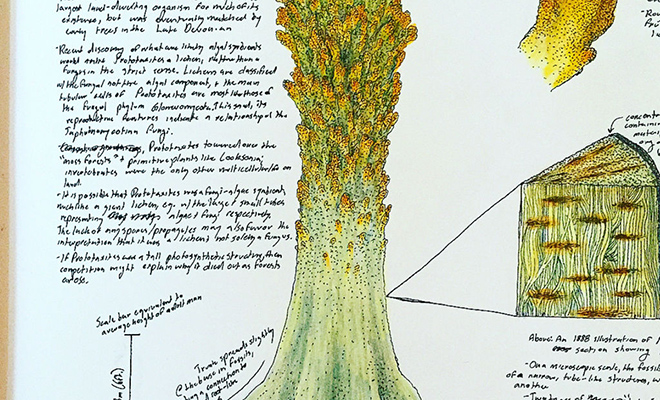 largest land-dwelling organism for much of its
existence, but was eventually matched by
early trees in the Late Devonian
-Recent discovery of what are likely algal symbionts
would make Prototaxites a lichen, rather than a
fungus in the strict sense. Lichens are classified
by the fungal not the algal component, & the main
tubular cells of Prototaxites are most like those of
the fungal phylum Glomeromycota. This said, its
reproductive features indicate a relationship to the
Taphrinomycotina fungi.
Prototaxites towered over the
"moss forests" & primitive plants like Cooksonia;
invertebrates were the only other multicellular life on
land.
-It is possible that Prototaxites was a fungi-algae symbiont,
much like a giant lichen, e.g. w/ the large & small tubes
representing algae & fungi respectively.
The lack of any spores/propagules may also favour the
interpretation that it was a lichen & not solely a fungus.
-If Prototaxites was a tall photosynthetic structure, then
competition might explain why it died out as forests
arose.
Scale bar equivalent to
average height of adult man
Trunk spreads slightly
@ the base in fossils,
a connection to
a root-like
-Rou
fru
concent
containin
mater
org
Above: An 1888 illustration of
section showing
-On a microscopic scale, the fossil
of a narrow, tube-like structures, w
another